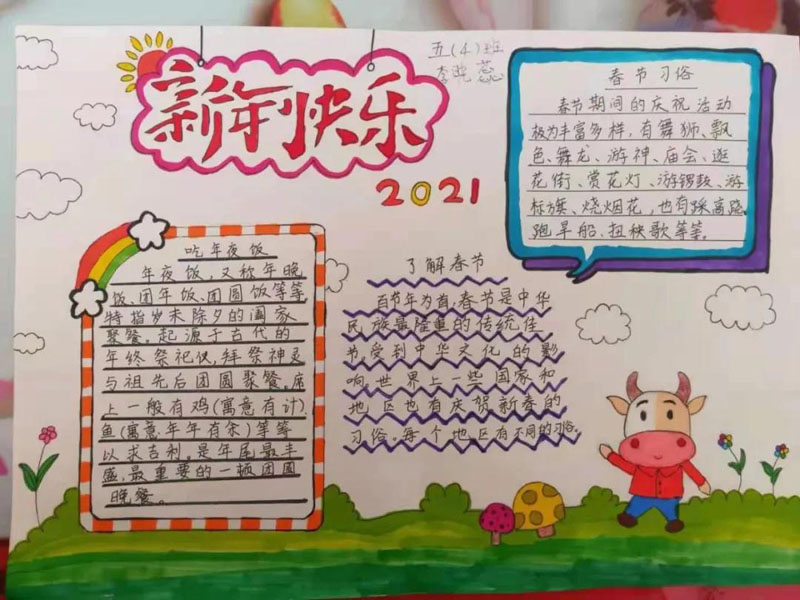 五(4)班
李晓蕊
新年快乐
2021
春节习俗
春节期间的庆祝活动
极为丰富多样,有舞狮、飘
色、舞龙、游神、庙会、逛
花街、赏花灯、游锣鼓、游
标旗、烧烟花,也有踩高跷、
跑旱船、扭秧歌等等。
吃年夜饭
年夜饭,又称年晚
饭、团年饭、团圆饭等等
特指岁末除夕的阖家
聚餐。起源于古代的
年终祭祀仪,拜祭神灵
与祖先后团圆聚餐。席
上一般有鸡(寓意有计)
鱼(寓意年年有余)等等
以求吉利。是年尾最丰
盛,最重要的一顿团圆
晚餐。
了解春节
百节年为首,春节是中华
民族最隆重的传统佳
节,受到中华文化的影
响,世界上一些国家和
地区也有庆贺新春的
习俗。每个地区有不同的习俗。